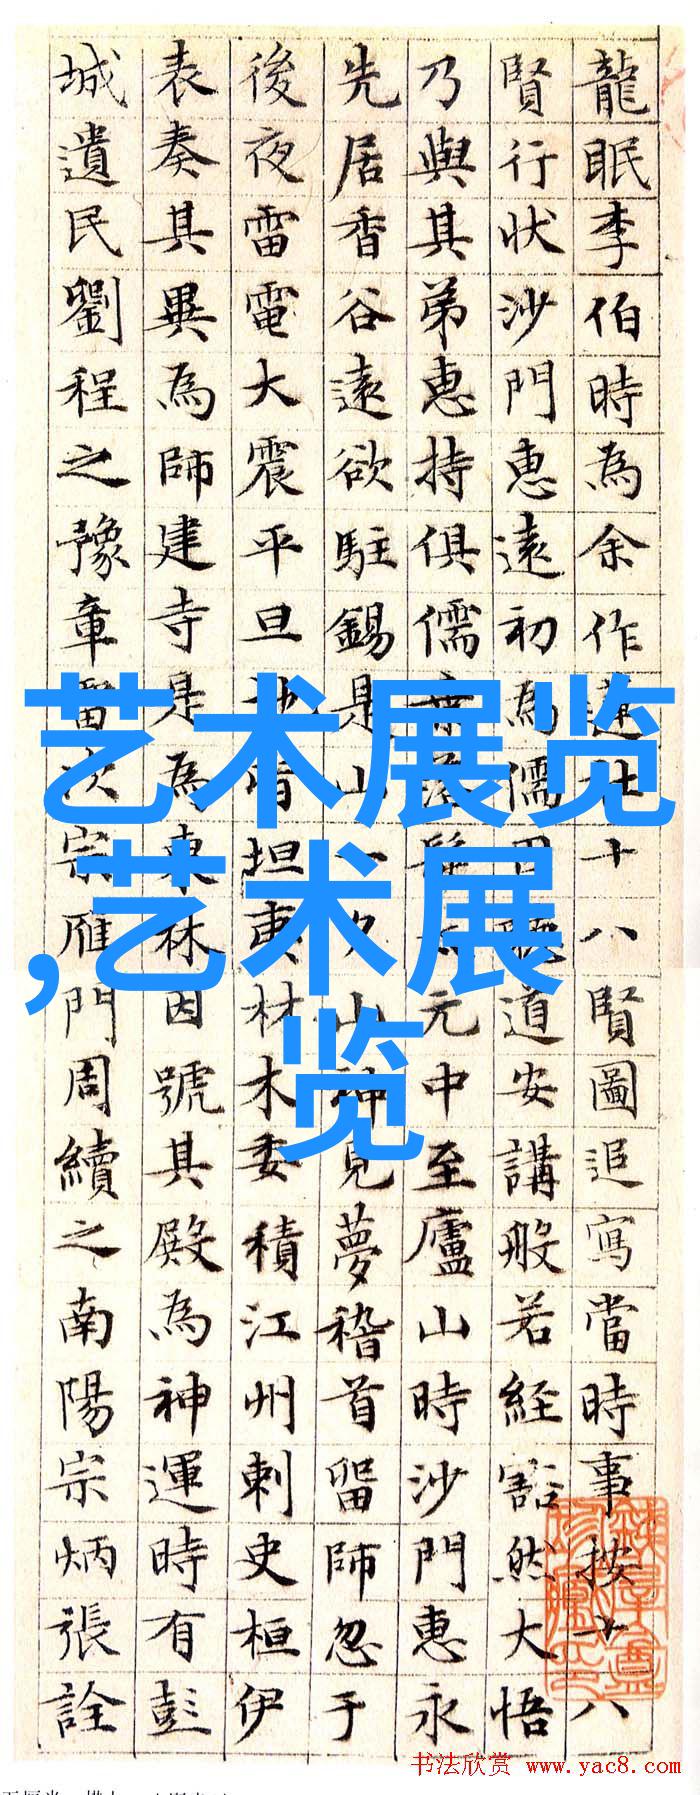 龍眠李伯時為余作蓮社十八賢圖追寫當時事按十八
賢行狀沙門惠遠初為儒因聽道安講般若經豁然大悟
乃與其弟惠持俱儒元中至廬山時沙門惠永
先居香谷遠欲駐錫是山一夕山神見夢稽首留師忽于
後夜雷電大震平旦地皆坦夷材木委積江州刺史桓伊
表奏其異為師建寺是為東林因號其殿為神運時有彭
城遺民劉程之豫章雷次宗雁門周續之南陽宗炳張詮
艺术展览
,艺术展
览
书法欣赏 www.yac8.com